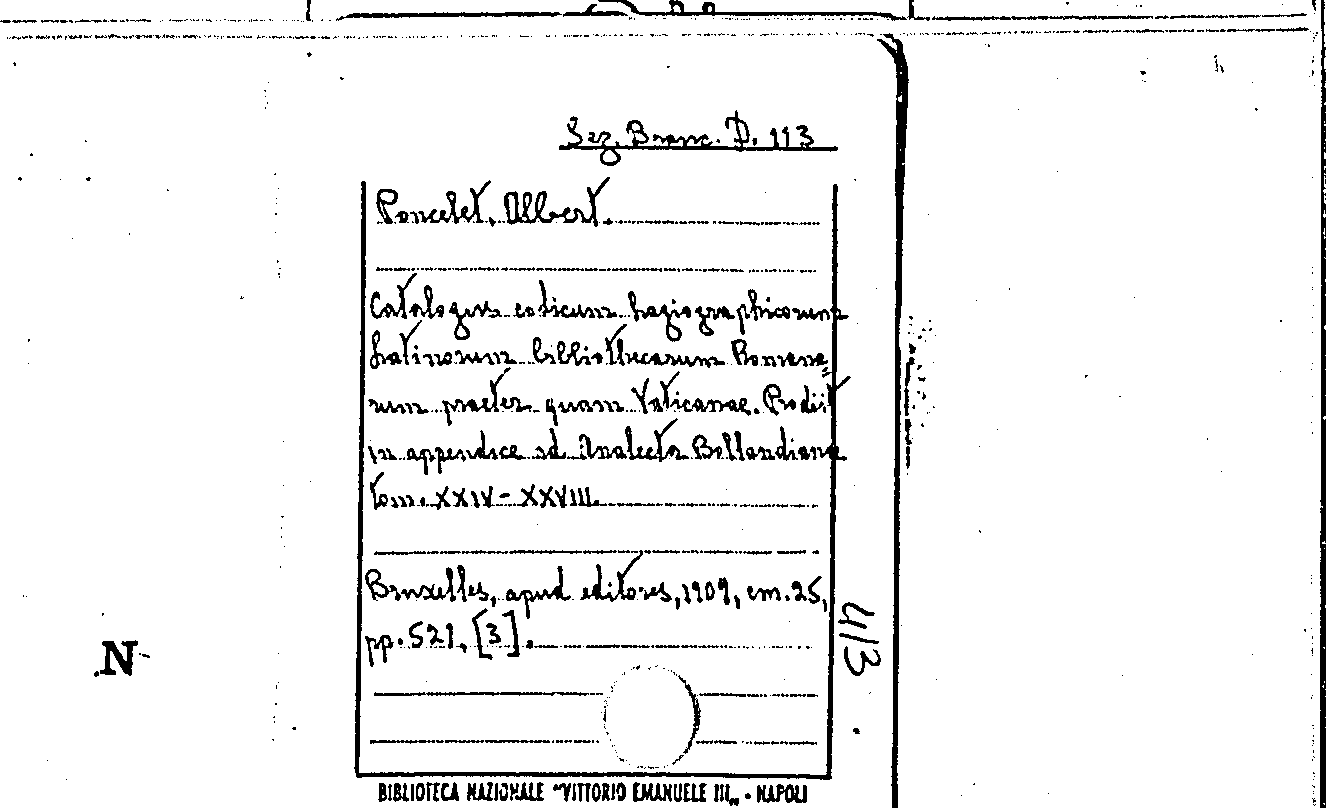 Sez. Branc. D. 113
Poncelet, Albert.
Catalogus codicum hagiographicorum
latinorum bibliothecarum Romana=
rum praeter quam Vaticanae. Prodiit
in appendice ad Analecta Bollandiana
tom. XXIV-XXVIII.
Bruxelles, apud editores, 1909, cm. 25,
pp. 521, [3].
4/3
N
BIBLIOTECA NAZIONALE "VITTORIO EMANUELE III„ - NAPOLI